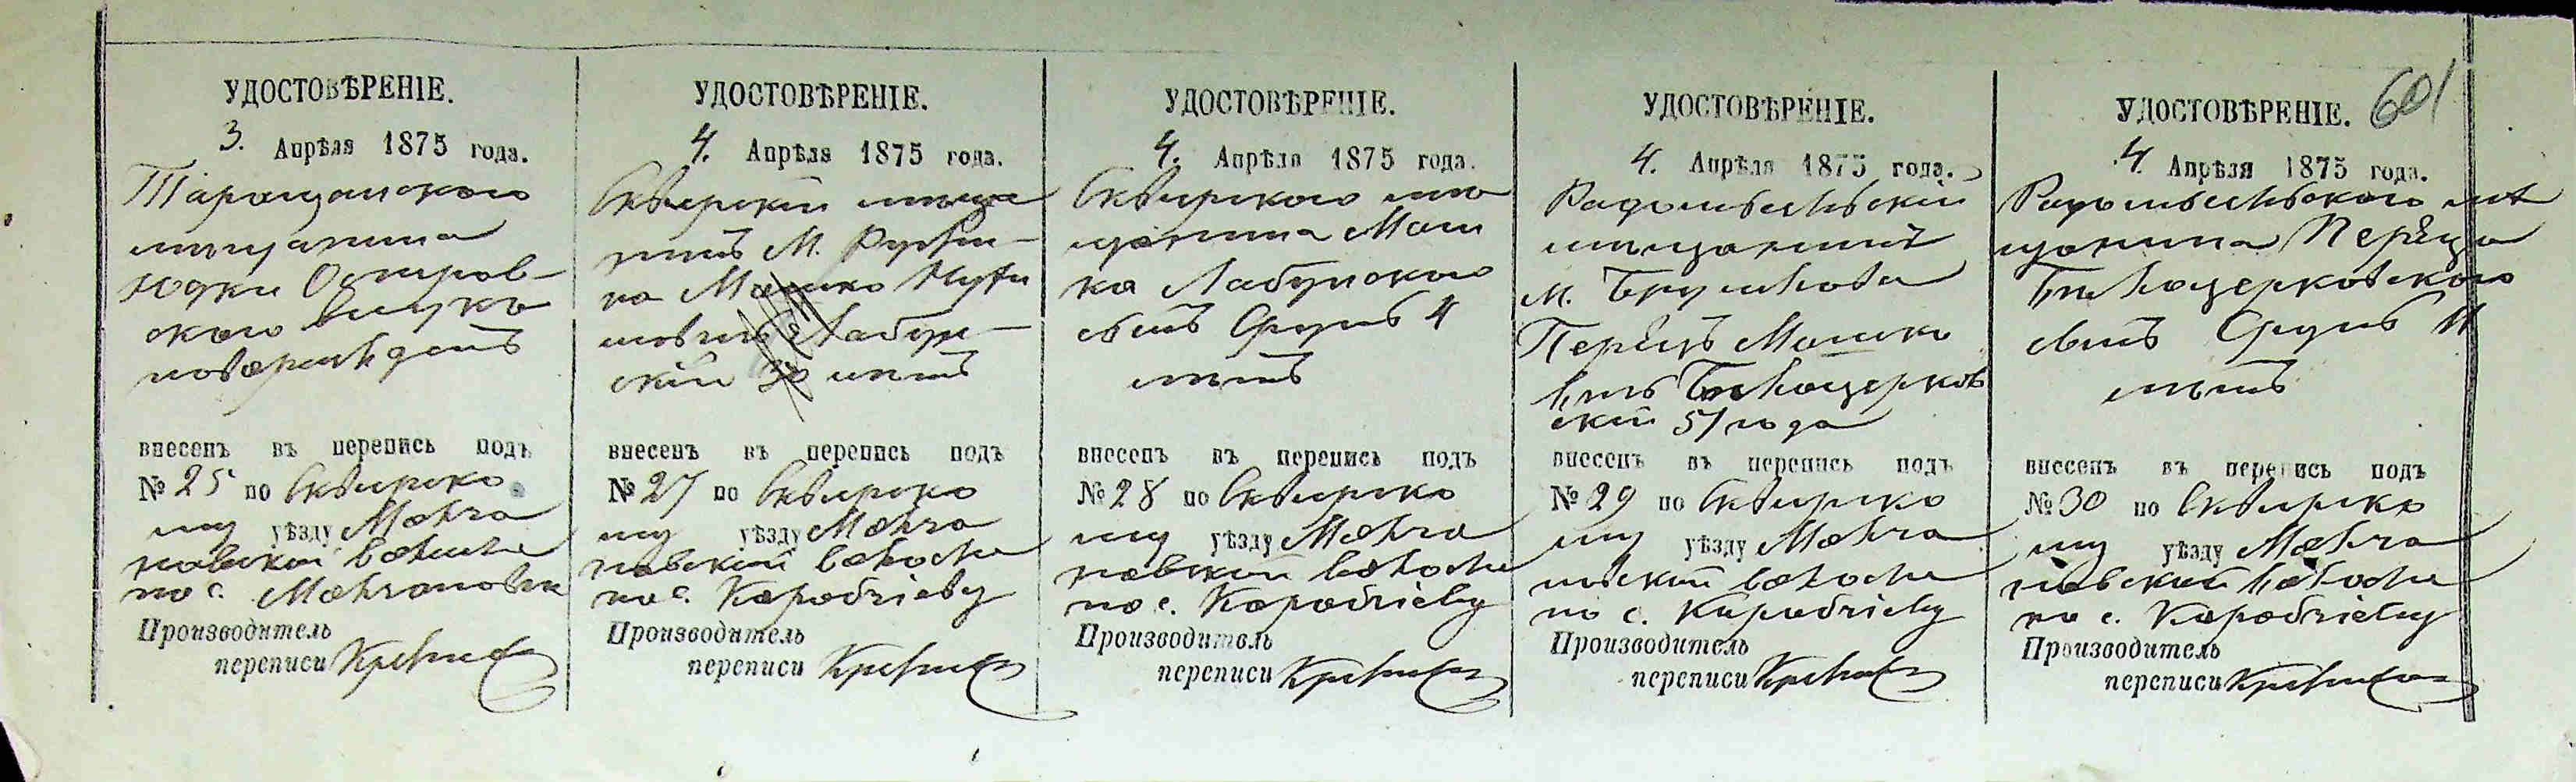 601
УДОСТОВѢРЕНІЕ.
3. Апрѣля 1875 года.
Таращанского
мѣщанина
Юдки Остров-
ского внукъ
новорожденъ
внесенъ въ перепись подъ
№ 25 по Сквирско
му уѣзду Молча
новской волости
по с. Молчановкѣ
Производитель
переписи
УДОСТОВѢРЕНІЕ.
4. Апрѣля 1875 года.
Сквирскій мѣща
нинъ М. Ружи-
на Мошко
Лабун-
скій 30 лѣтъ
внесенъ въ перепись подъ
№ 27 по Сквирско
му уѣзду Молча
новской волости
по с. Коробчіеву
Производитель
переписи
УДОСТОВѢРЕНІЕ.
4. Апрѣля 1875 года.
Сквирского мѣ
щанина Мош
ка Лабунского
сынъ Сруль 4
лѣтъ
внесенъ въ перепись подъ
№ 28 по Сквирско
му уѣзду Молча
новской волости
по с. Коробчіеву
Производитель
переписи
УДОСТОВѢРЕНІЕ.
4. Апрѣля 1875 года.
Радомысльскій
мѣщанинъ
м. Брусилова
Перецъ Мошко
вичъ Бѣлоцерков
скій 51 года
внесенъ въ перепись подъ
№ 29 по Сквирско
му уѣзду Молча
новской волости
по с. Коробчіеву
Производитель
переписи
УДОСТОВѢРЕНІЕ.
4. Апрѣля 1875 года.
Радомысльского мѣ
щанина Переца
Бѣлоцерковского
сынъ Сруль 11
лѣтъ
внесенъ въ перепись подъ
№ 30 по Сквирско
му уѣзду Молча
новской волости
по с. Коробчіеву
Производитель
переписи